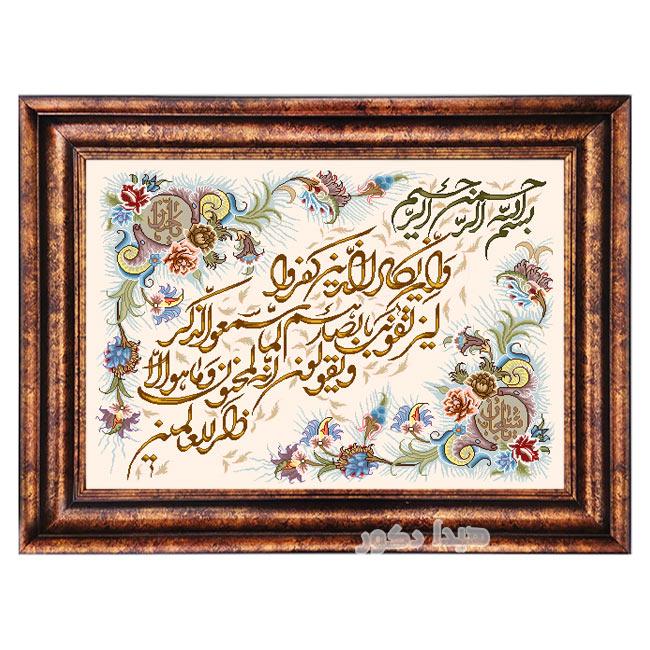 بسم الله الرحمن الرحیم
وان یکاد الذین کفروا
لیزلقونک بابصارهم لما سمعوا الذکر
ویقولون انه لمجنون وما هو الا
ذکر للعالمین
هیدا دکور